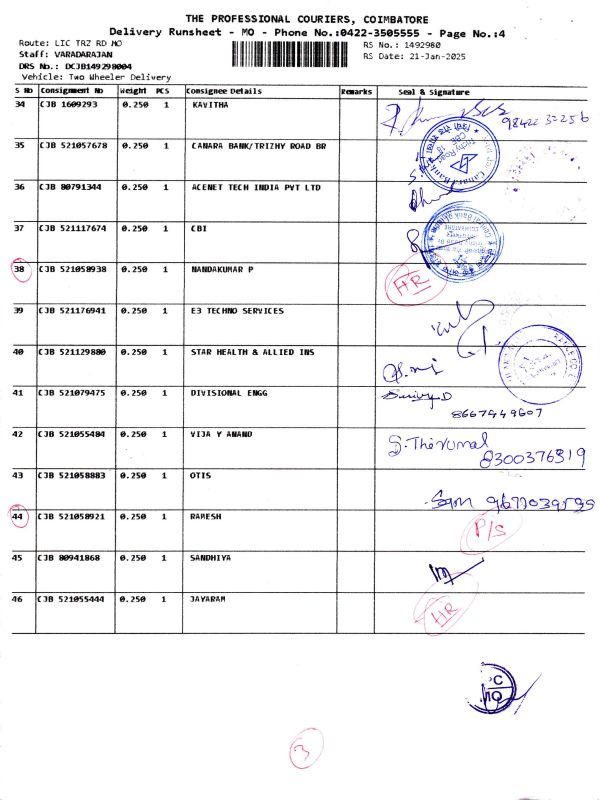 THE PROFESSIONAL COURIERS, COIMBATORE
Delivery Runsheet - MO - Phone No.:0422-3505555 - Page No.:4
Route: LIC TRZ RD MO
RS No.: 1492980
Staff: VARADARAJAN
RS Date: 21-Jan-2025
DRS No.: DCJB149298004
Vehicle: Two Wheeler Delivery
S No Consignment No Weight PCS Consignee Details Remarks Seal & Signature
34 CJB 1609293 0.250 1 KAVITHA
98422 32256
35 CJB 521057678 0.250 1 CANARA BANK/TRIZHY ROAD BR
36 CJB 80791344 0.250 1 ACENET TECH INDIA PVT LTD
37 CJB 521117674 0.250 1 CBI
38 CJB 521058938 0.250 1 NANDAKUMAR P HR
39 CJB 521176941 0.250 1 E3 TECHNO SERVICES
40 CJB 521129880 0.250 1 STAR HEALTH & ALLIED INS
41 CJB 521079475 0.250 1 DIVISIONAL ENGG
8667949607
42 CJB 521055484 0.250 1 VIJA Y ANAND S.Thirumal
8300376319
43 CJB 521058883 0.250 1 OTIS
44 CJB 521058921 0.250 1 RAMESH P/S
45 CJB 80941868 0.250 1 SANDHIYA
46 CJB 521055444 0.250 1 JAYARAM HR
3